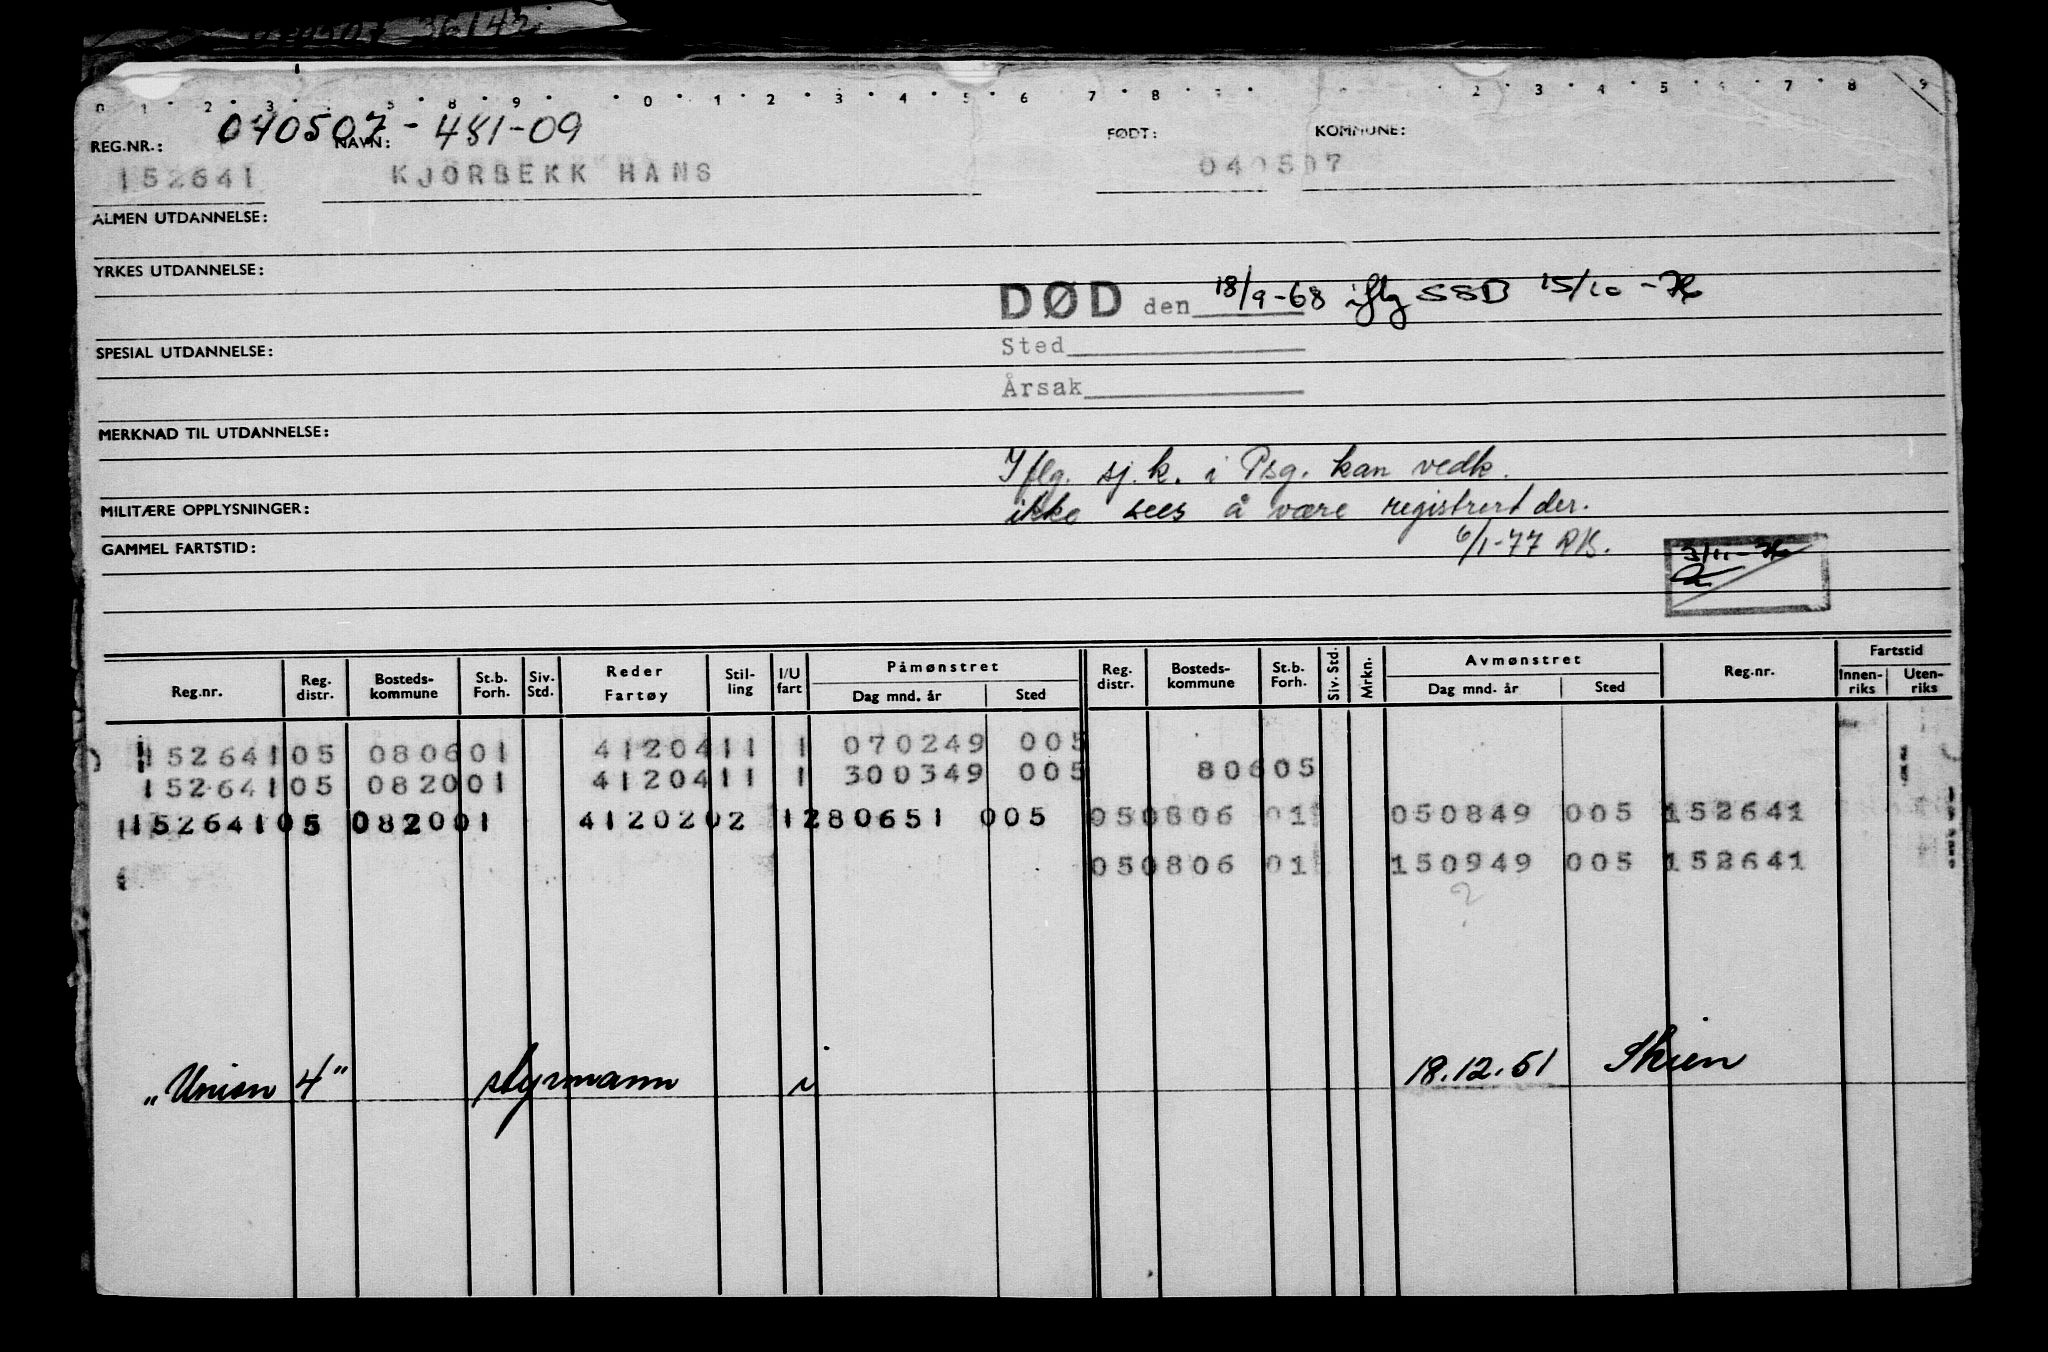 0 1 2 3 5 8 9 0 1 2 3 4 5 6 7 8 2 3 4 5 6 7 8 9
040507-481-09
REG.NR.: NAVN: FØDT: KOMMUNE:
152641 KJÖRBEKK HANS 040507
ALMEN UTDANNELSE:
YRKES UTDANNELSE:
DØD den 18/9-68 iflg SSB 15/10-76
SPESIAL UTDANNELSE: Sted
Årsak
MERKNAD TIL UTDANNELSE:
Iflg. sj.k. i Psg. kan vedk.
MILITÆRE OPPLYSNINGER: ikke sees å være registrert der.
GAMMEL FARTSTID: 6/1-77 RK.
3/11-76
Reg.nr. Reg. distr. Bosteds-kommune St.b. Forh. Siv. Std. Reder Fartøy Stil-ling I/U fart Påmønstret Dag mnd. år Sted Reg. distr. Bosteds-kommune St.b. Forh. Siv. Std. Mrkn. Avmønstret Dag mnd. år Sted Reg.nr. Fartstid Innen-riks Uten-riks
152641 05 0806 01 41204 11 1 070249 005
152641 05 0820 01 41204 11 1 300349 005 80605
152641 05 0820 01 41202 02 1 280651 005 05 0806 01 050849 005 152641
05 0806 01 150949 005 152641
?
„Union 4" styrmann i 18.12.51 Skien